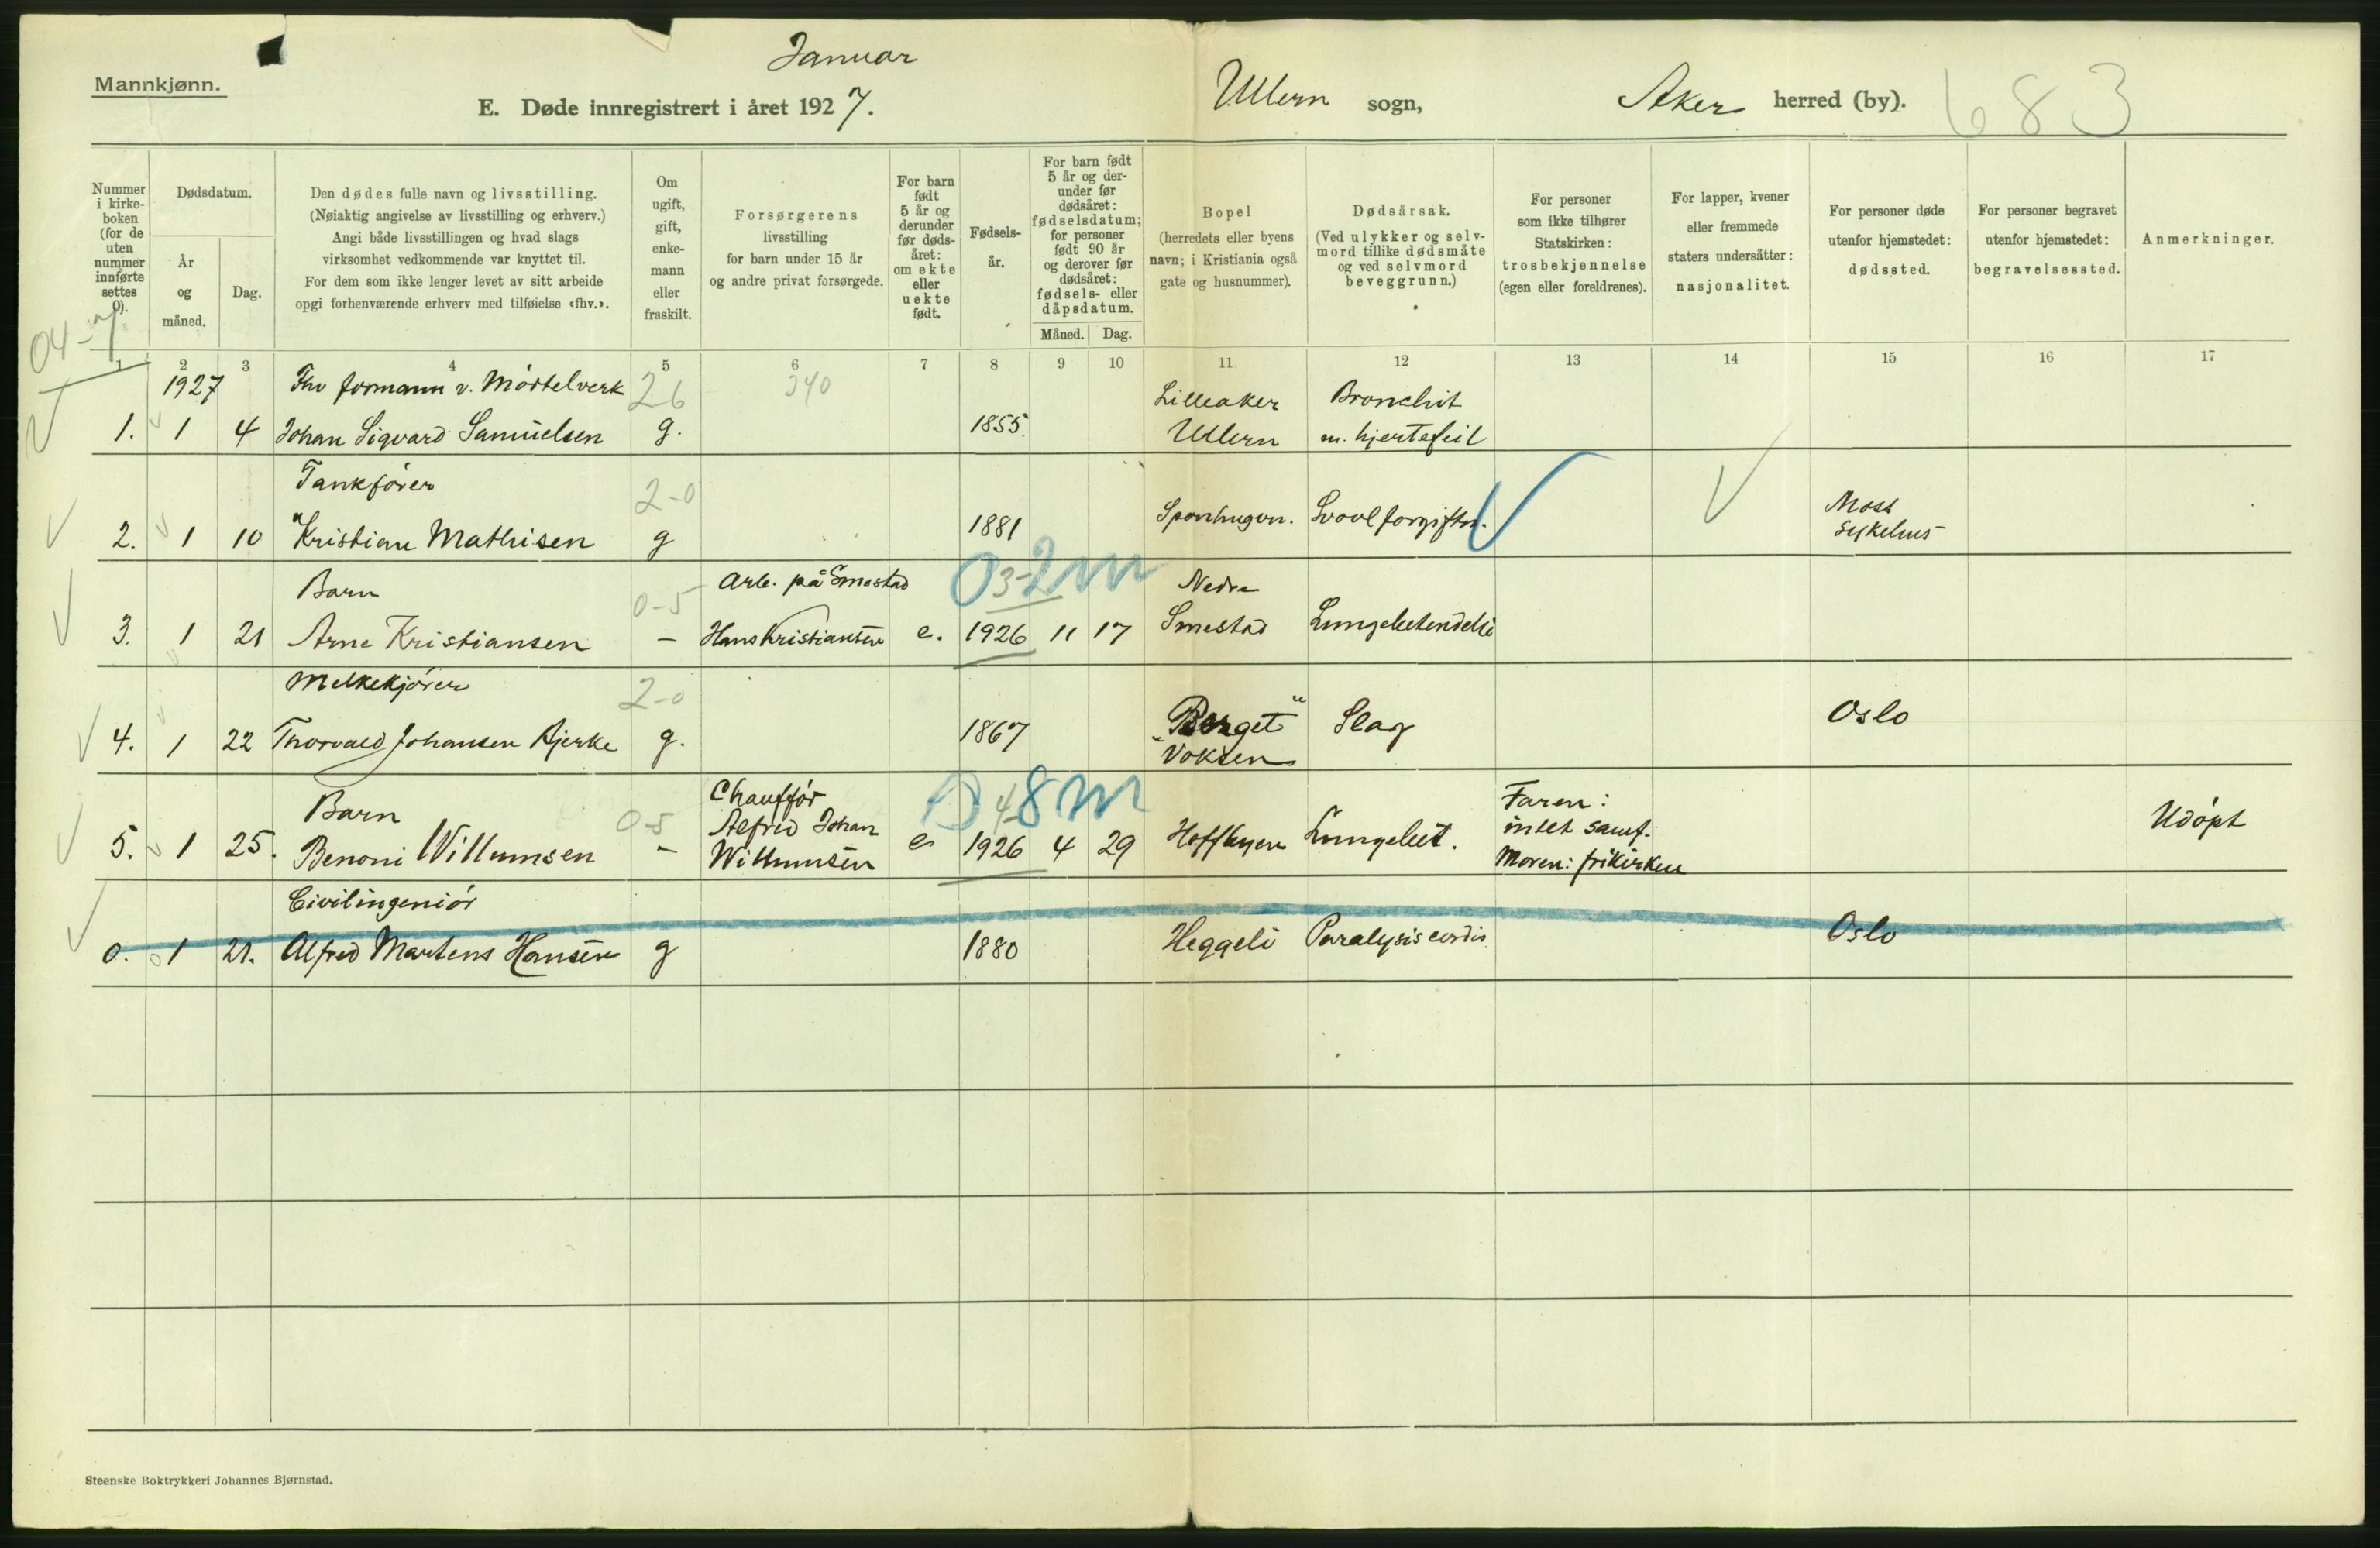 Januar
Mannkjønn.
E. Døde innregistrert i året 1927.
Ullern sogn,
Aker herred (by).
683
Nummer i kirke-boken (for de uten nummer innførte settes 0).
Dødsdatum.
År og måned.
Dag.
Den dødes fulle navn og livsstilling.
(Nøiaktig angivelse av livsstilling og erhverv.)
Angi både livsstillingen og hvad slags
virksomhet vedkommende var knyttet til.
For dem som ikke lenger levet av sitt arbeide
opgi forhenværende erhverv med tilføielse «fhv.».
Om ugift, gift, enke-mann eller fraskilt.
Forsørgerens
livsstilling
for barn under 15 år
og andre privat forsørgede.
For barn født 5 år og derunder før døds-året: om ekte eller uekte født.
Fødsels-år.
For barn født 5 år og der-under før dødsåret: fødselsdatum; for personer født 90 år og derover før dødsåret: fødsels- eller dåpsdatum.
Måned. Dag.
Bopel
(herredets eller byens
navn; i Kristiania også
gate og husnummer).
Dødsårsak.
(Ved ulykker og selv-
mord tillike dødsmåte
og ved selvmord
beveggrunn.)
For personer
som ikke tilhører
Statskirken:
trosbekjennelse
(egen eller foreldrenes).
For lapper, kvener
eller fremmede
staters undersåtter:
nasjonalitet.
For personer døde
utenfor hjemstedet:
dødssted.
For personer begravet
utenfor hjemstedet:
begravelsessted.
Anmerkninger.
04-7
1 2 3 4 5 6 7 8 9 10 11 12 13 14 15 16 17
1927 Fhv formann v. Mørtelverk 26 340 Lilleaker Bronchit
1. 1 4 Johan Sigvard Samuelsen g. 1855. Ullern m. hjertefeil
Tankfører 2-0 Moss
2. 1 10 Kristian Mathisen g 1881 Svovlforgiftn. Sykehus
Barn 0-5 Arb. på Smestad 03-2m Nedre
3. 1 21 Arne Kristiansen - Hans Kristiansen e. 1926 11 17 Smestad Lungebetendelse
Melkekjører 2-0
4. 1 22 Thorvald Johansen Bjerke g. 1867 "Berget" Slag Oslo
Voksen
Chauffør 0 4-8m Faren:
Barn 0-5 Alfred Johan intet samf. Udøpt
5. 1 25. Benoni Willumsen - Willumsen e. 1926 4 29 Hoffbyen Lungebet. Moren: frikirken
Civilingeniør
0. 0 1 21. Alfred Martens Hansen g 1880 Heggeli Paralysis cordis Oslo
Steenske Boktrykkeri Johannes Bjørnstad.